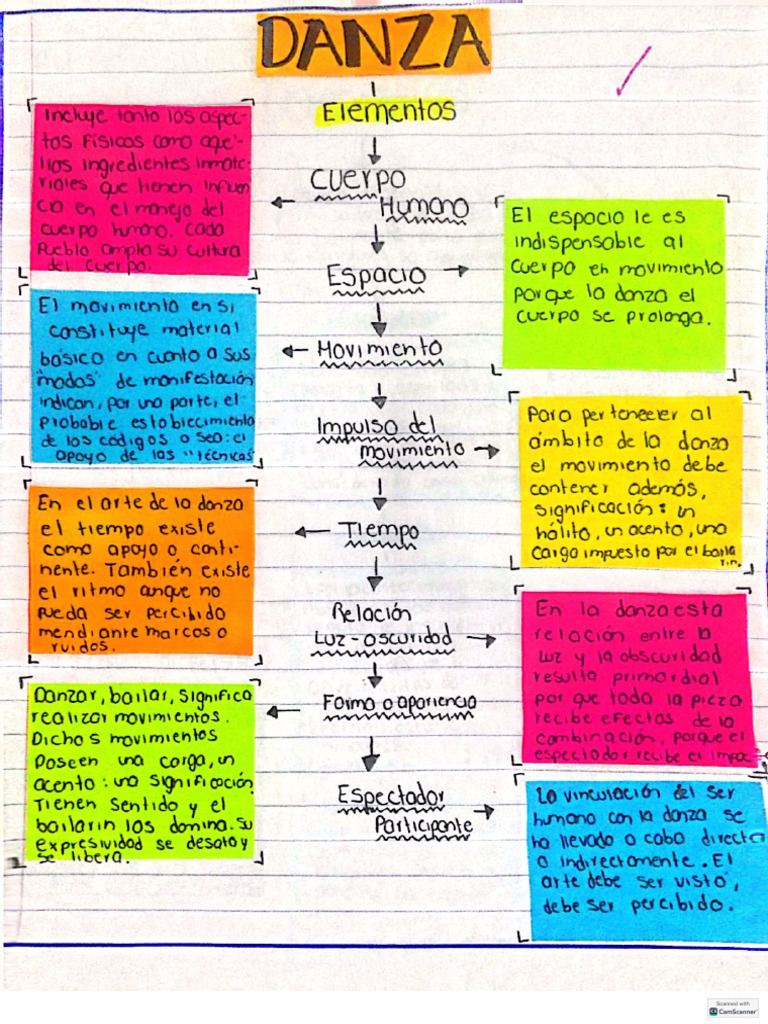 DANZA
Elementos
Cuerpo
Humano
Incluye tanto los aspec-
tos físicos como aque-
llos ingredientes inmate-
riales que tienen influen
cia en el manejo del
cuerpo humano. Cada
Pueblo amplia su cultura
del cuerpo.
Espacio
El espacio le es
indispensable al
cuerpo en movimiento
porque la danza el
cuerpo se prolonga.
Movimiento
El movimiento en si
constituye material
básico en cuanto a sus
"modos" de manifestación
indican, por una parte, el
probable establecimiento
de los códigos o sea: el
apoyo de las "técnicas"
Impulso del
movimiento
Para pertenecer al
ámbito de la danza
el movimiento debe
contener además,
significación: un
hálito, un acento, una
carga impuesto por el baila
rin.
Tiempo
En el arte de la danza
el tiempo existe
como apoyo o conti-
nente. También existe
el ritmo aunque no
pueda ser percibido
mendiante marcos o
ruidos.
Relación
Luz-oscuridad
En la danza esta
relación entre la
luz y la obscuridad
resulta primordial
por que toda la pieza
recibe efectos de la
combinación, porque el
espectador recibe el impac
Forma o apariencia
Danzar, bailar, significa
realizar movimientos.
Dichos movimientos
Poseen una carga, un
acento: una significación
Tienen sentido y el
bailarin los domina. su
expresividad se desata y
se libera.
Espectador
Participante
La vinculación del ser
humano con la danza se
ha llevado a cabo directa
o indirectamente. El
arte debe ser visto,
debe ser percibido.
Scanned with
CS CamScanner